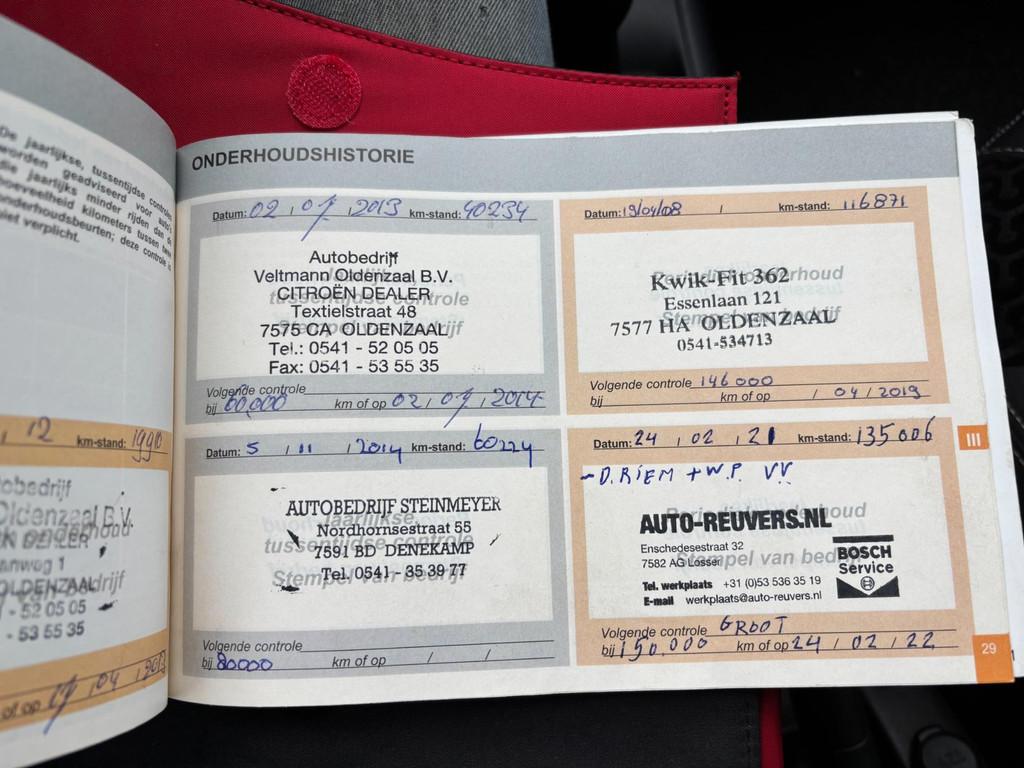 De jaarlijkse, tussentijdse controles
worden geadviseerd voor auto's
die jaarlijks minder rijden dan de
hoeveelheid kilometers tussen twee
onderhoudsbeurten; deze controle is
niet verplicht.
12 km-stand: 19910
obedrijf
Oldenzaal B.V.
EN DEALER
anweg 1
OLDENZAAL
- 52 05 05
- 53 55 35
of op 17 / 04 / 2013
ONDERHOUDSHISTORIE
Datum: 02 / 07 / 2013 km-stand: 40234
Autobedrijf
Veltmann Oldenzaal B.V.
CITROËN DEALER
Textielstraat 48
7575 CA OLDENZAAL
Tel.: 0541 - 52 05 05
Fax: 0541 - 53 55 35
Jaarlijkse,
tussentijdse controle
Stempel van bedrijf
Volgende controle
bij 60,000 km of op 02 / 07 / 2014
Datum: 19/04/08 / km-stand: 116871
Kwik-Fit 362
Essenlaan 121
7577 HA OLDENZAAL
0541-534713
Periodiek onderhoud
Stempel van bedrijf
Volgende controle 146000
bij km of op / 04 / 2019
Datum: 5 / 11 / 2014 km-stand: 60224
AUTOBEDRIJF STEINMEYER
Nordhornsestraat 55
7591 BD DENEKAMP
Tel. 0541 - 35 39 77
Jaarlijkse,
tussentijdse controle
Stempel van bedrijf
Volgende controle
bij 80000 km of op / /
Datum: 24 / 02 / 21 km-stand: 135006
- D.RIEM + W.P. VV
AUTO-REUVERS.NL
Enschedesestraat 32
7582 AG Losser
Tel. werkplaats +31 (0)53 536 35 19
E-mail werkplaats@auto-reuvers.nl
BOSCH
Service
Stempel van bedrijf
Volgende controle GROOT
bij 150.000 km of op 24 / 02 / 22
III
29